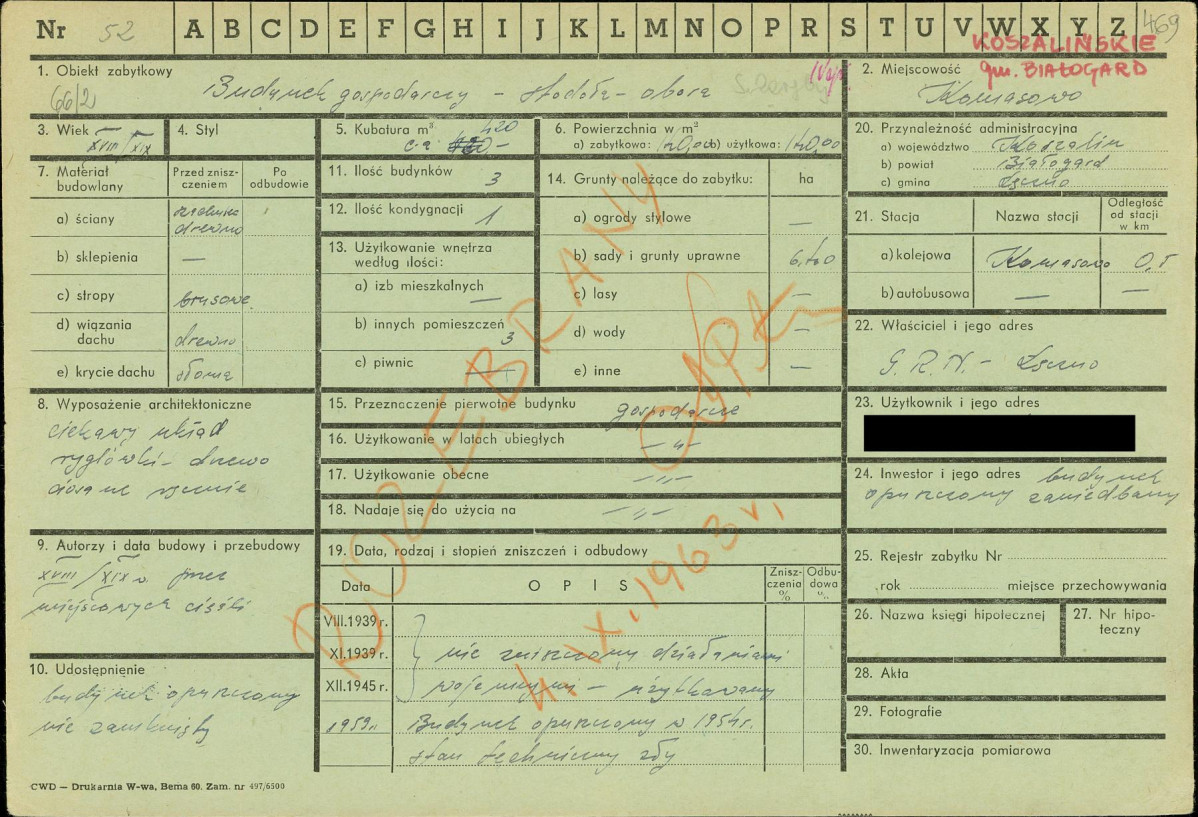 Nr 52 A B C D E F G H I J K L M N O P R S T U V W X Y Z 469
KOSZALIŃSKIE
gm. BIAŁOGARD
1. Obiekt zabytkowy
66/2 Budynek gospodarczy – stodoła – obora
2. Miejscowość
3. Wiek XVIII/XIX
4. Styl
5. Kubatura m³ 420
c.a.
6. Powierzchnia w m²
a) zabytkowa: 140,00 b) użytkowa: 140,00
20. Przynależność administracyjna
a) województwo Koszalin
b) powiat Białogard
c) gmina
7. Materiał budowlany
Przed zniszczeniem
Po odbudowie
a) ściany
drewno
b) sklepienia —
c) stropy brusowe
d) wiązania dachu drewno
e) krycie dachu słoma
11. Ilość budynków 3
12. Ilość kondygnacji 1
13. Użytkowanie wnętrza
według ilości:
a) izb mieszkalnych —
b) innych pomieszczeń 3
c) piwnic —
14. Grunty należące do zabytku: ha
a) ogrody stylowe —
b) sady i grunty uprawne
c) lasy —
d) wody —
e) inne —
21. Stacja
Nazwa stacji
Odległość od stacji w km
a) kolejowa 0,5
b) autobusowa — —
22. Właściciel i jego adres
G. R. N. –
8. Wyposażenie architektoniczne
ciekawy układ
ryglówki – drzewo
ciosane ręcznie
15. Przeznaczenie pierwotne budynku gospodarcze
16. Użytkowanie w latach ubiegłych —„—
17. Użytkowanie obecne —„—
18. Nadaje się do użycia na —„—
23. Użytkownik i jego adres
24. Inwestor i jego adres budynek
opuszczony zaniedbany
9. Autorzy i data budowy i przebudowy
XVIII/XIX w. przez
miejscowych cieśli
10. Udostępnienie
budynek opuszczony
nie zamknięty
19. Data, rodzaj i stopień zniszczeń i odbudowy
Data
OPIS
Zniszczenia %
Odbudowa %
VIII.1939 r.
XI.1939 r. nie zniszczony działaniami
XII.1945 r. wojennymi – użytkowany
1959 r. Budynek opuszczony w 1954 r.
stan techniczny zły
ROZEBRANY
4.IX.1963 r.
25. Rejestr zabytku Nr
rok miejsce przechowywania
26. Nazwa księgi hipotecznej
27. Nr hipoteczny
28. Akta
29. Fotografie
30. Inwentaryzacja pomiarowa
CWD — Drukarnia W-wa, Bema 60. Zam. nr 497/6500